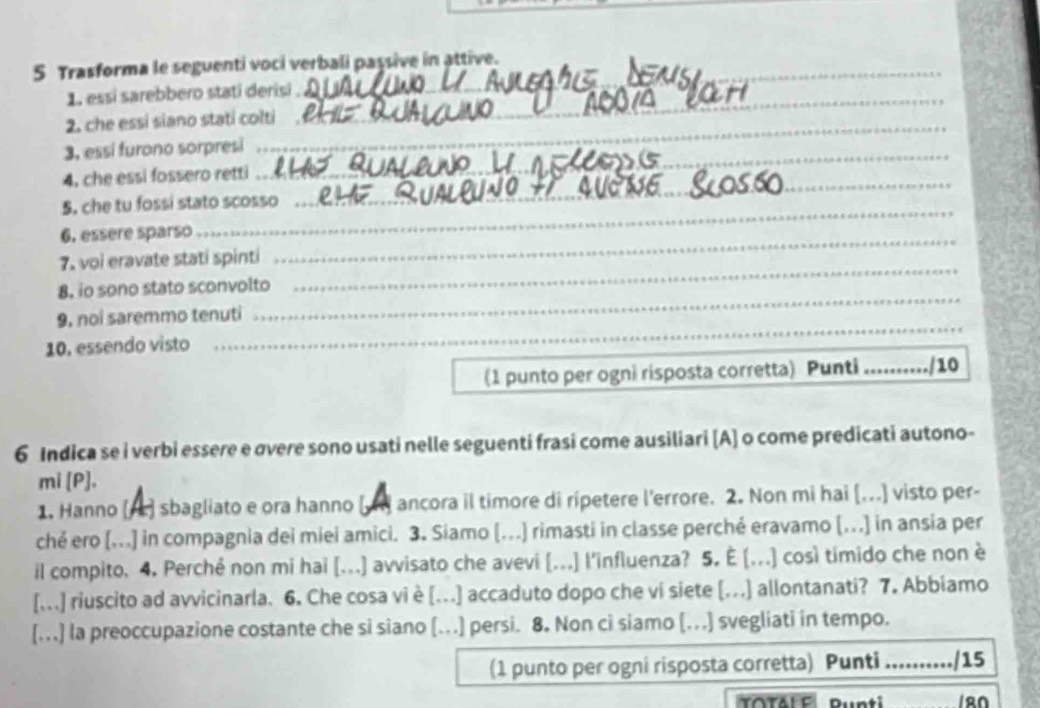 5 Trasforma le seguenti voci verbali passive in attive.
1. essi sarebbero stati derisi QUALCUNO LI AVREBBE DERISI
2. che essi siano stati colti CHE QUALCUNO ABBIA
3. essi furono sorpresi
4. che essi fossero retti CHE QUALCUNO LI
5. che tu fossi stato scosso CHE QUALCUNO TI AVESSE SCOSSO
6. essere sparso
7. voi eravate stati spinti
8. io sono stato sconvolto
9. noi saremmo tenuti
10. essendo visto
(1 punto per ogni risposta corretta) Punti ........../10
6 Indica se i verbi essere e avere sono usati nelle seguenti frasi come ausiliari [A] o come predicati autono-
mi [P].
1. Hanno [A] sbagliato e ora hanno [A] ancora il timore di ripetere l'errore. 2. Non mi hai [...] visto per-
ché ero [...] in compagnia dei miei amici. 3. Siamo [...] rimasti in classe perché eravamo [...] in ansia per
il compito. 4. Perché non mi hai [...] avvisato che avevi [...] l'influenza? 5. È [...] così timido che non è
[...] riuscito ad avvicinarla. 6. Che cosa vi è [...] accaduto dopo che vi siete [...] allontanati? 7. Abbiamo
[...] la preoccupazione costante che si siano [...] persi. 8. Non ci siamo [...] svegliati in tempo.
(1 punto per ogni risposta corretta) Punti ........../15
TOTALE Punti /80